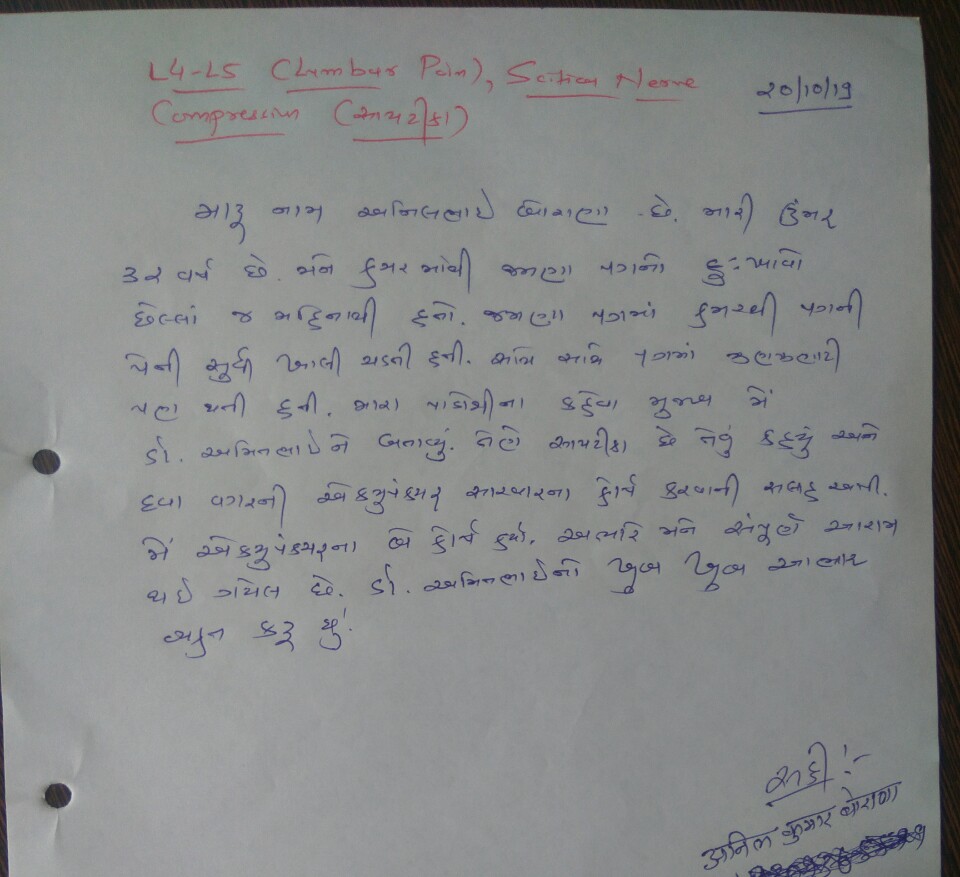 L4-L5 (Lumbar Pain), Scitica Nerve
20/10/19
Compression (સાયટીકા)
મારૂ નામ અનિલભાઇ બોરાણા છે. મારી ઉંમર
૩૨ વર્ષ છે. મને કમરમાંથી જમણા પગનો દુઃખાવો
છેલ્લાં જ મહિનાથી હતો. જમણા પગમાં કમરથી પગની
પેની સુધી ખાલી ચડતી હતી. સાથે સાથે પગમાં ઝણઝણાટી
પણ થતી હતી. મારા પાડોશીના કહેવા મુજબ મેં
ડો. અમિતભાઇને બતાવ્યું. તેણે સાયટીકા છે તેવું કહ્યું અને
દવા વગરની એક્યુપંક્ચર સારવારના કોર્ષ કરવાની સલાહ આપી.
મેં એક્યુપંક્ચરના બે કોર્ષ કર્યા. અત્યારે મને સંપૂર્ણ આરામ
થઇ ગયેલ છે. ડો. અમિતભાઇનો ખુબ ખુબ આભાર
વ્યક્ત કરૂ છું.
સહી :-
अनिल कुमार बोराणा